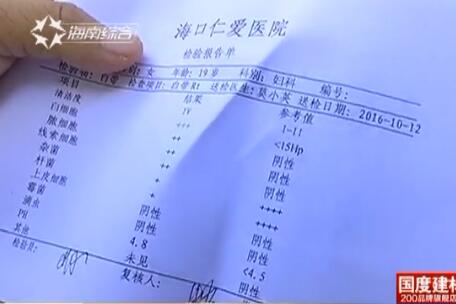 海南综合
海口仁爱医院
检验报告单
女 年龄: 19岁 科别: 妇科 编号:
检验物: 白带 检查项目: 白带Rt 送检医生: 莫小英 送检日期: 2016-10-12
项目 结果 参考值
清洁度 IV I-II
白细胞 +++ <15Hp
脓细胞 ++ 阴性
线索细胞 ++ 阴性
杂菌 ++ 阴性
杆菌 + ++++
上皮细胞 + ++++
霉菌 阴性 阴性
滴虫 阴性 阴性
PH 4.8 <4.5
其他 未见
检验员: 复核人:
国度建材
200品牌旗舰店